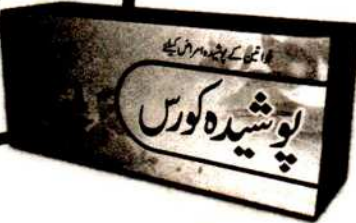 خواتین کے پوشیدہ امراض کیلئے
پوشیدہ کورس